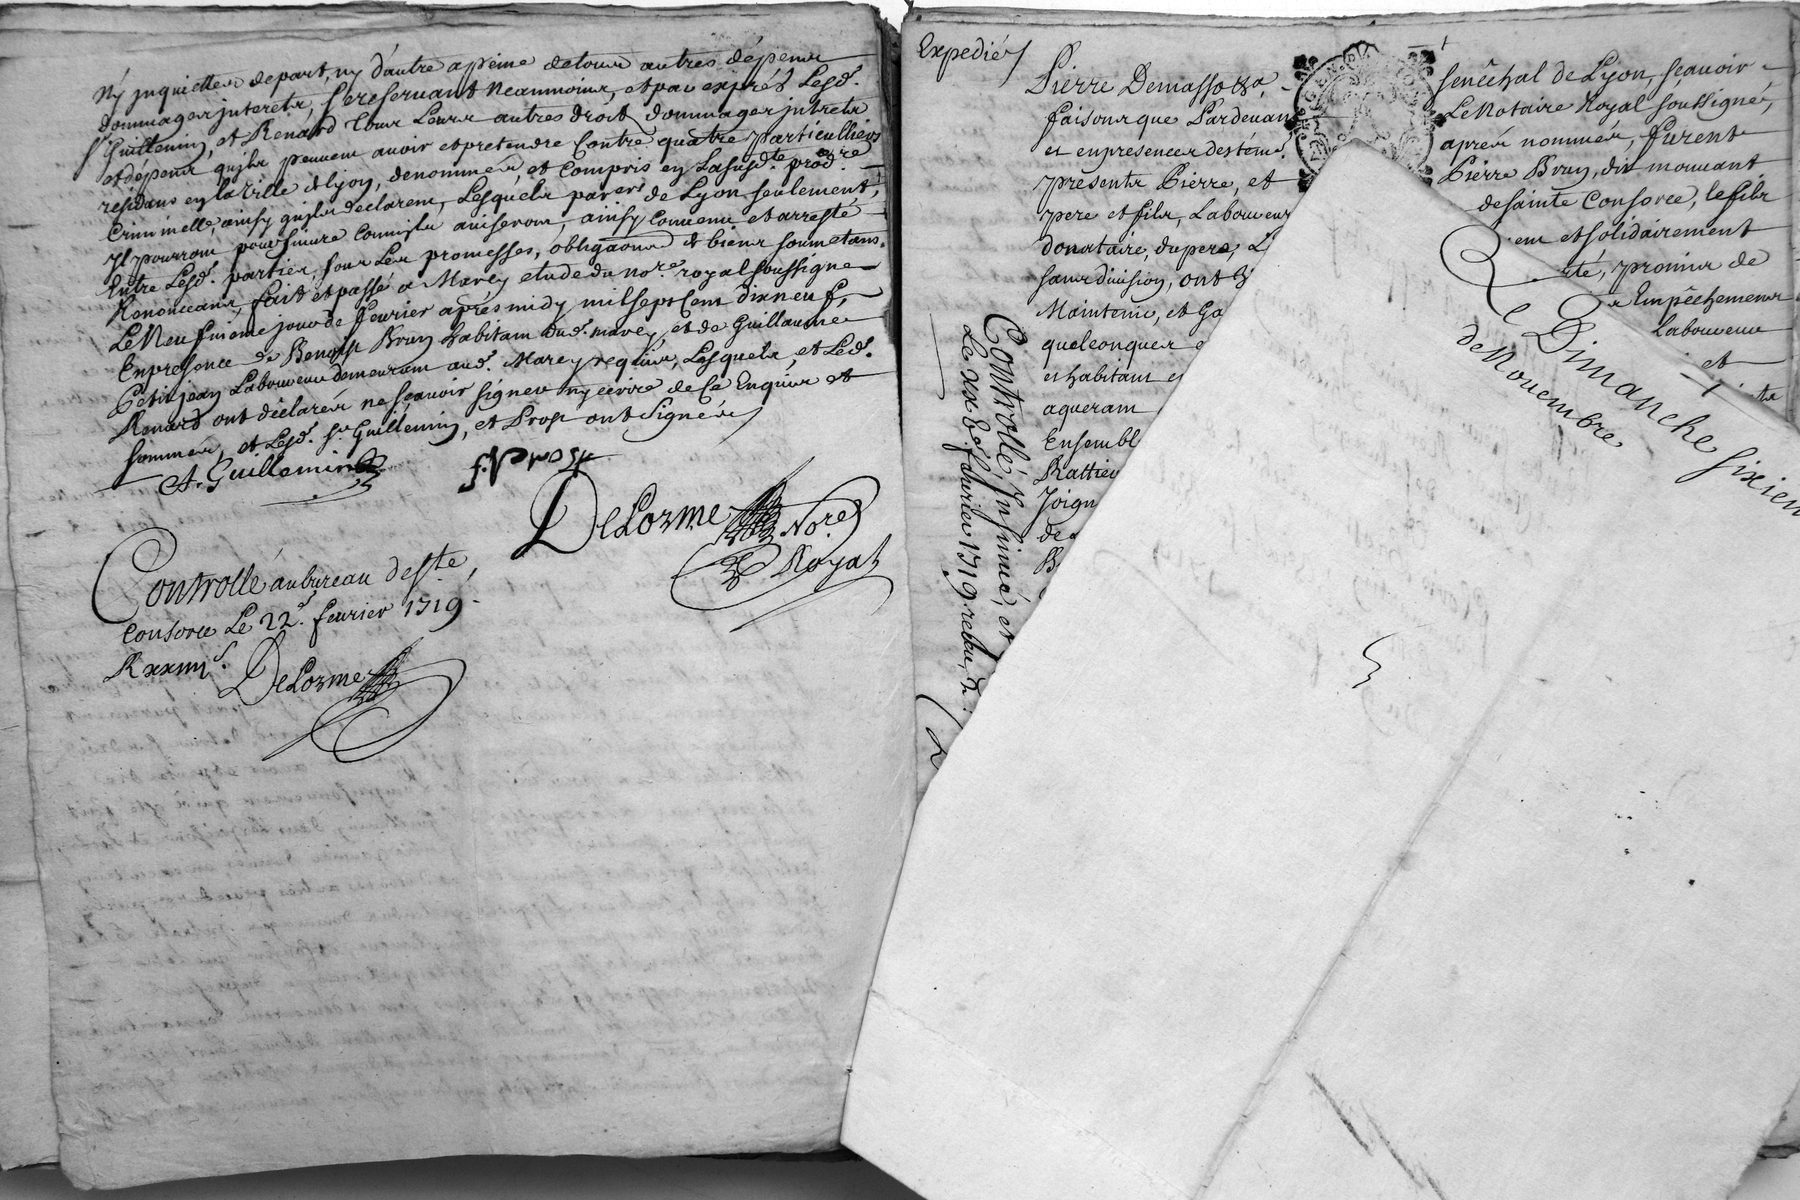 Ny jnquietter depart, ny d'autre apeine detous autres dépens
dommages jnterets, se reservant neanmoins, et par exprés Lesd.
Srs Guillemin, et Renard tous Leurs autres droits dommages jnterets
et dépens quils peuvent avoir et pretendre Contre quatre particulliers
residans en la ville de Lyon, denommés, et Compris en La susdte. procédre
Criminelle, ainsy quils declarent, Lesquels pars. de Lyon seulement,
jls pourront poursuivre Comme jls aviseront, ainsy Convenu et arresté
Entre Lesd. parties, sous Les promesses, obligaons de biens soumetans.
Renonceans, fait et passé a Marcy etude du nore. royal soussigné
Le Neufvieme jour de fevrier aprés midy mil sept Cent dix neuf,
En presence de Benoist Brun habitant dud. marcy, et de Guillaume
Petitjean Laboureur demeurant aud. Marcy requis, Lesquels et Led.
Renard ont déclarés ne sçavoir signer ny écrire de Ce Enquis et
sommés, et Lesd. Sr Guillemin, et Prost ont signés
A. Guillemin
Prost
DeLorme Nore
Royal
Controllé au bureau de ste.
Consorce Le 22e. fevrier 1719.
R xxiiii s.
DeLorme
Expediés
Pierre Demasso &a.
faisons que Pardevan
et en presences des témo.
presents Pierre, et
pere et fils, Laboureurs
donataire, du pere,
sans division, ont
Maintenir, et Ga
quelconques
et habitant
aqueram
Ensembl
Rattier
Joign
de
Controllé, Insinué, et
Le xx 2e. fevrier 1719 receu,
senéchal de Lyon, sçavoir
Le Notaire Royal soussigné,
aprés nommés, furent
Pierre Brun, dit mouvant
de sainte Consorce, le fils
et solidairement
té, promis de
Empêchemens
Laboureur
et
Le Dimanche sixien
de Novembre